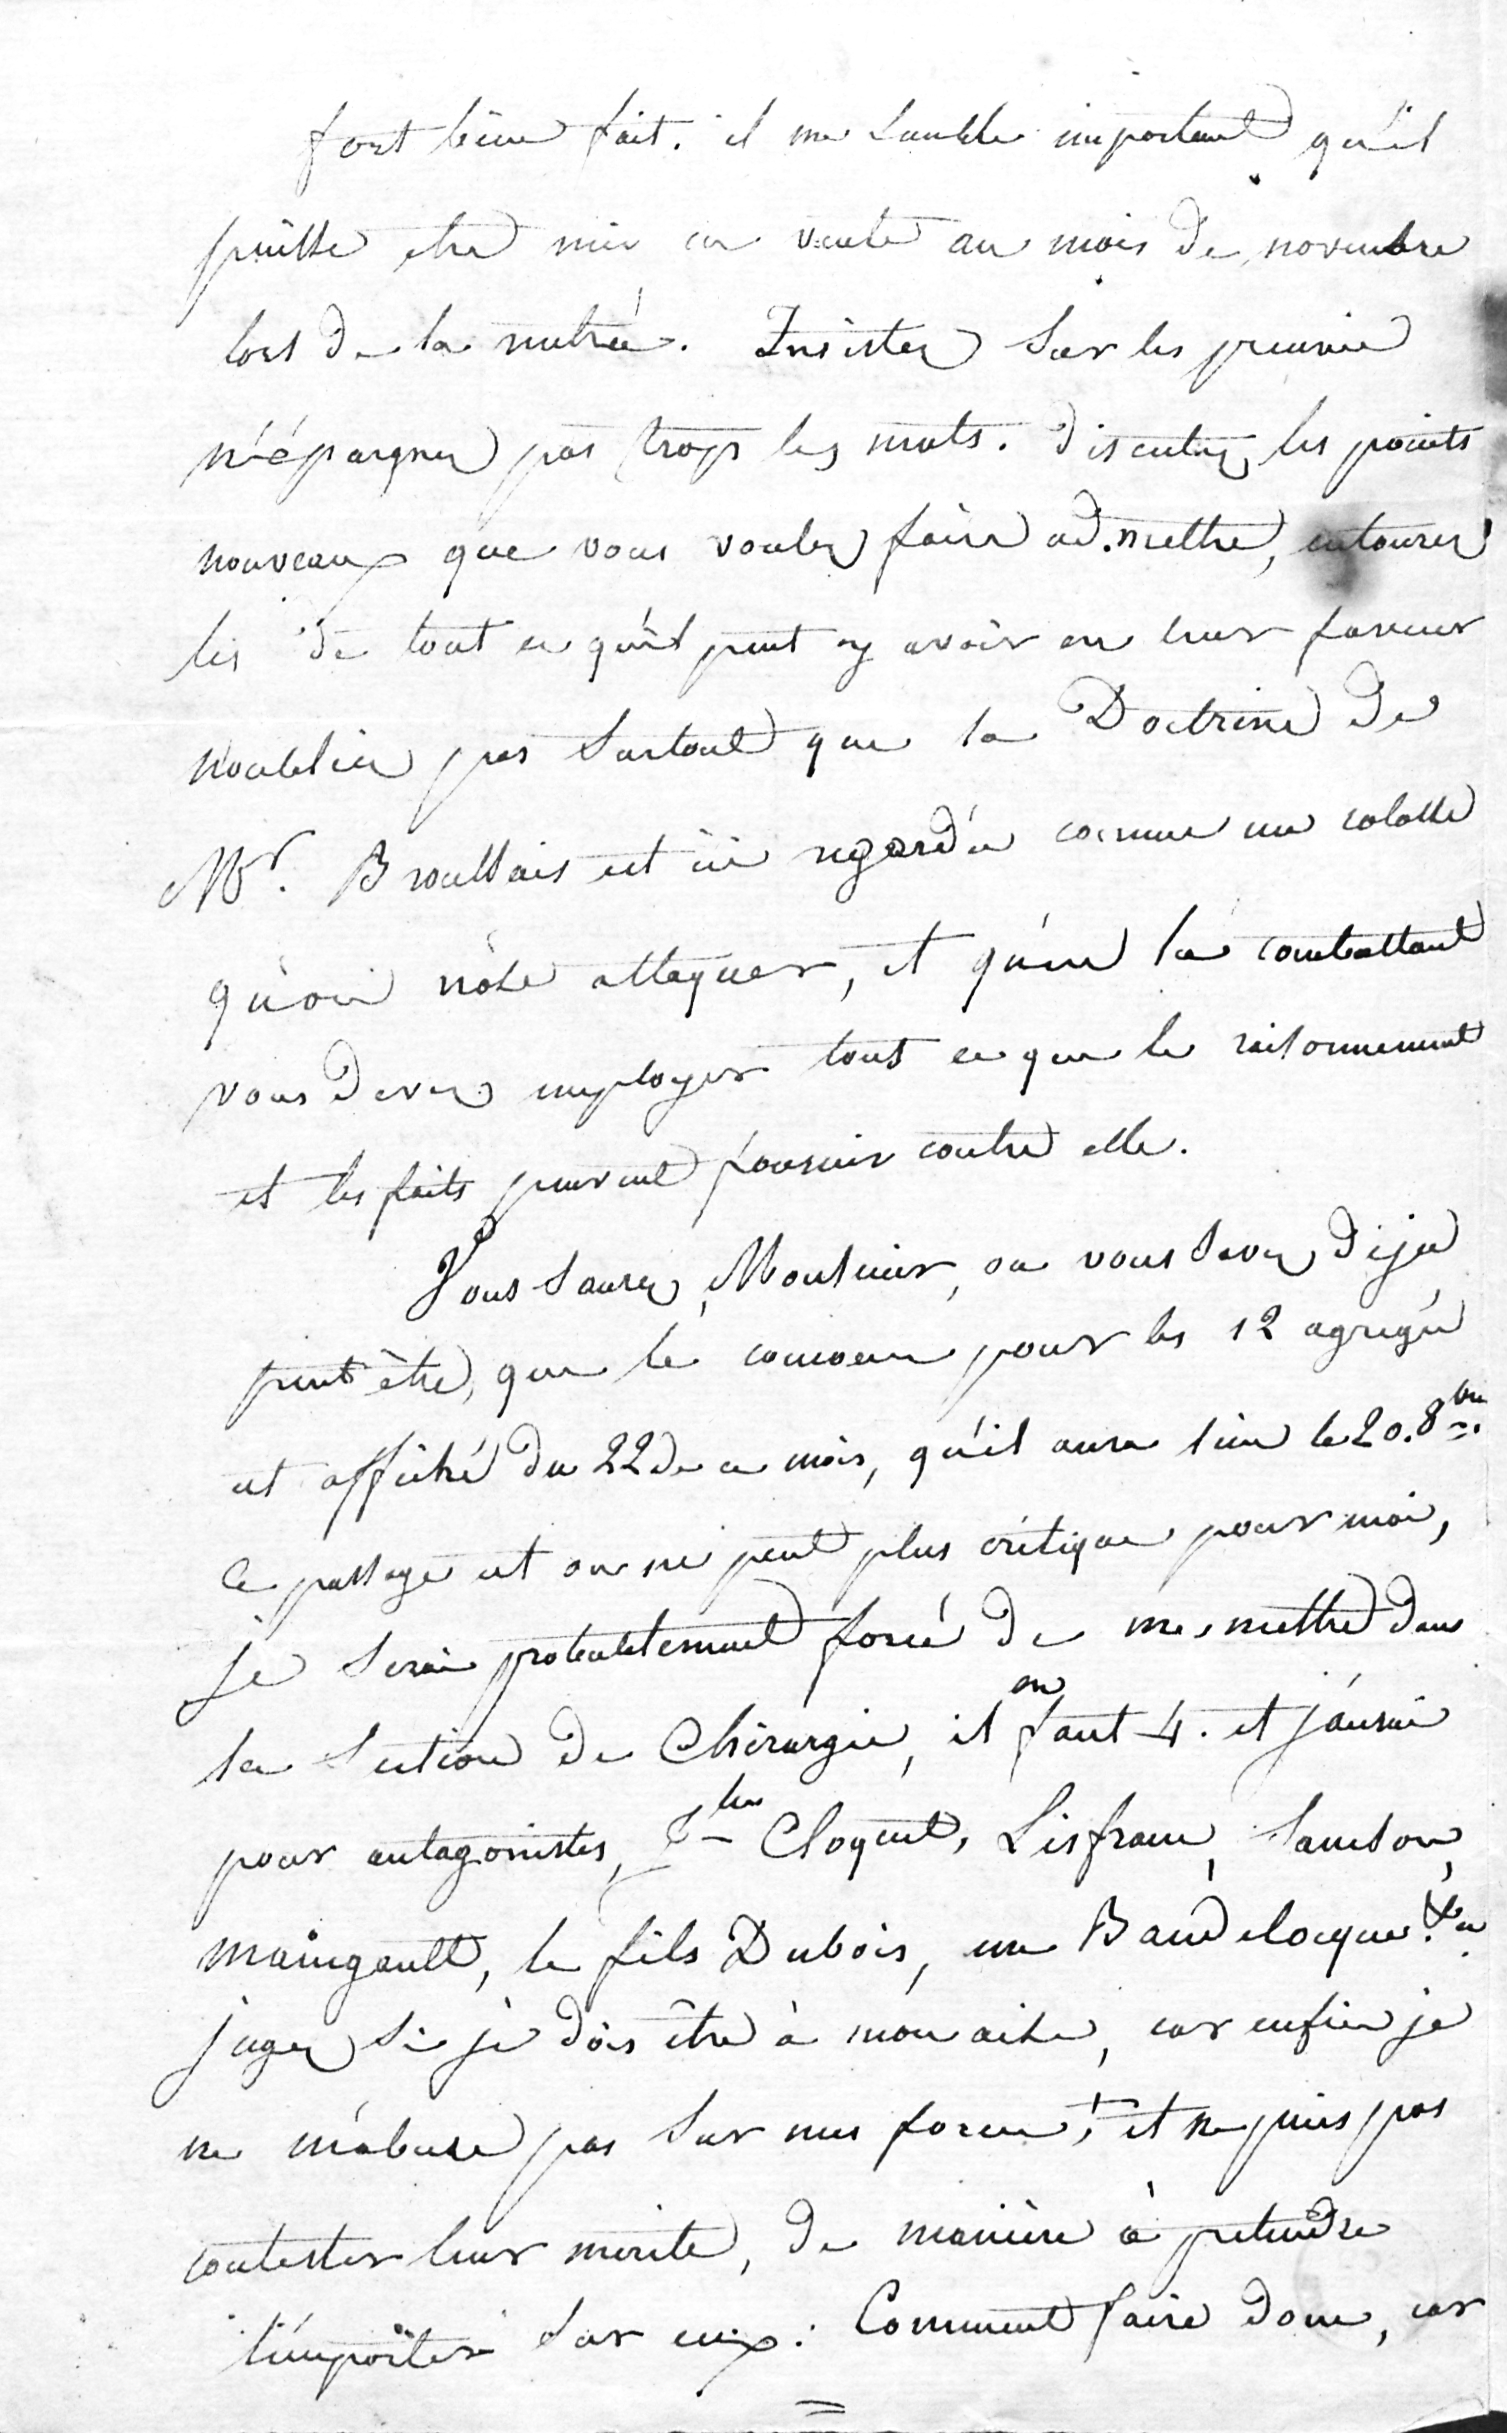 fort bien fait. il me semble important qu'il
puisse etre mis en vente au mois de novembre
lors de la rentrée. Insistez sur les preuves
n'épargnez pas trop les mots. discutez les points
nouveaux que vous voulez faire admettre, entourez
les de tout ce qu'il peut y avoir en leur faveur
n'oubliez pas surtout que la Doctrine de
Mr. Broussais est ici regardée comme un colosse
qu'on n'ose attaquer, et qu'en la combattant
vous devez employer tout ce que le raisonnement
et les faits peuvent fournir contre elle.
Vous saurez, Monsieur, ou vous savez déja
peut être, que le concours pour les 12 agregés
est affiché du 22 de ce mois, qu'il aura lieu le 20. 8bre.
Ce passage est on ne peut plus critique pour moi,
je serai probablement forcé de me mettre dans
la section de Chirurgie, il en faut 4. et j'aurai
pour antagonistes, Cloquet, Lisfranc, Sanson,
maingault, le fils Dubois, un Baudelocque &a.
jugez si je dois être à mon aise, car enfin je
ne m'abuse pas sur mes forces, et ne puis pas
contester leur merite, de manière à pretendre
l'emporter sur eux: Comment faire donc, car